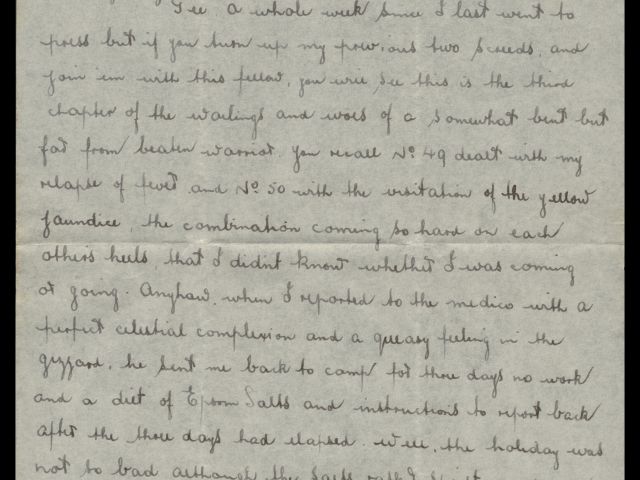 Gee a whole week since I last went to
press but if you turn up my previous two screeds, and
join 'em with this fellow, you will see this is the third
chapter of the wailings and woes of a somewhat bent but
far from beaten warrior. You recall No 49 dealt with my
relapse of fever and No 50 with the visitation of the yellow
jaundice, the combination coming so hard on each
others heels, that I didnt know whether I was coming
or going. Anyhow, when I reported to the medico with a
perfect celestial complexion and a queasy feeling in the
gizzard, he sent me back to camp for three days no work
and a diet of Epsom Salts and instructions to report back
after the three days had elapsed. Well, the holiday was
not so bad although the salts